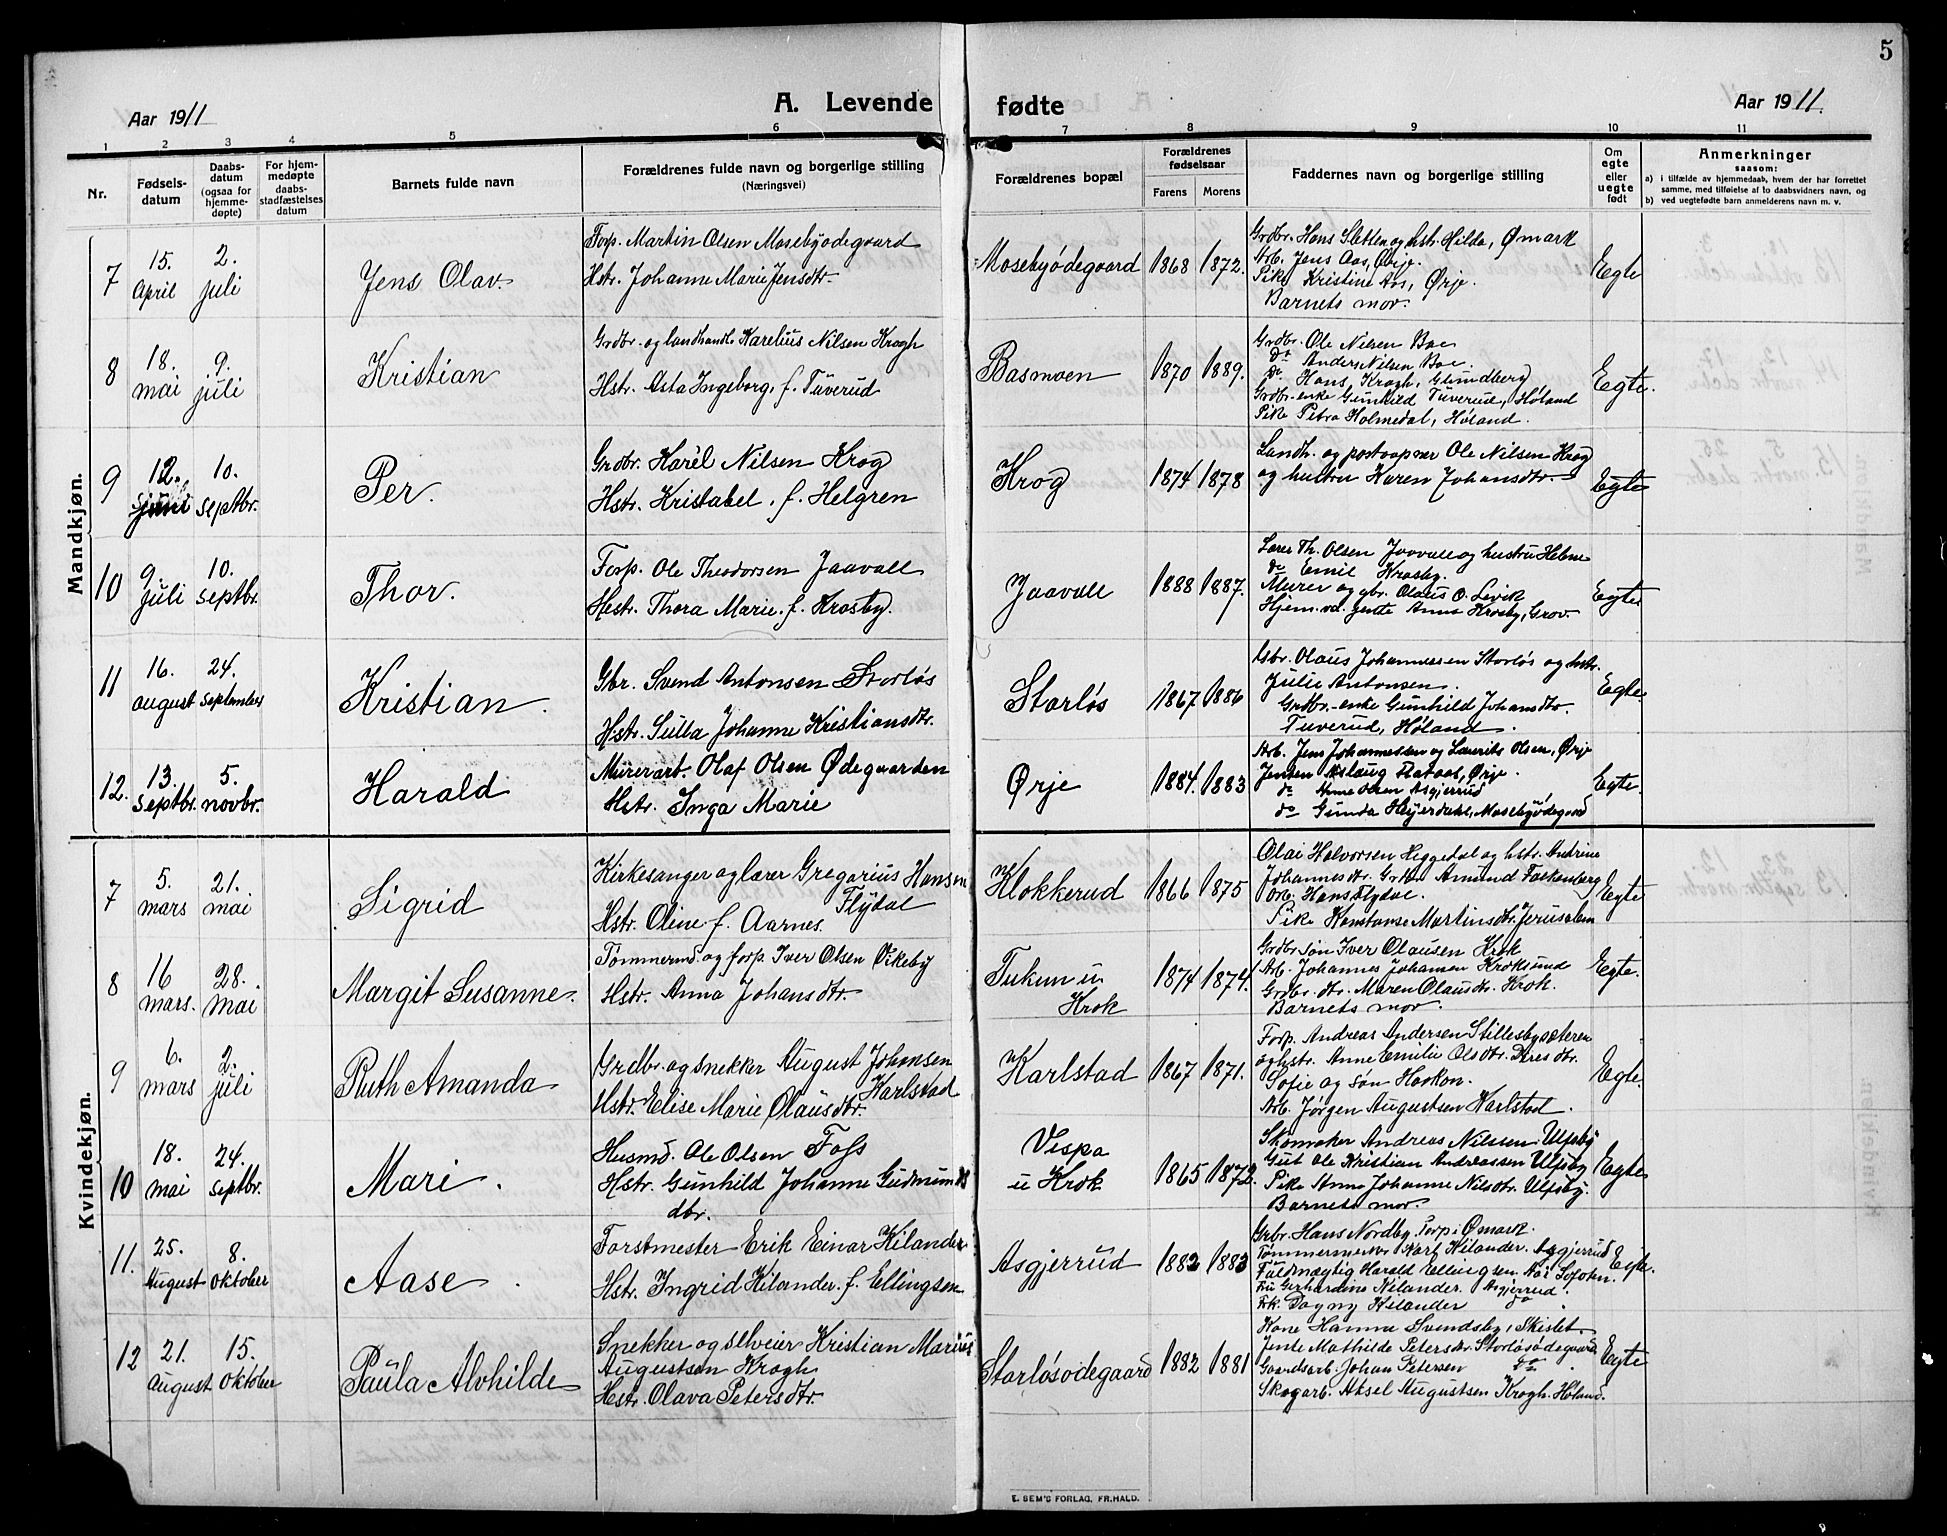 5
Aar 1911
A. Levende fødte
Aar 1911.
1 2 3 4 5 6 7 8 9 10 11
Nr.
Fødsels-
datum
Daabs-
datum
(ogsaa for
hjemme-
døpte)
For hjem-
medøpte
daabs-
stadfæstelses
datum
Barnets fulde navn
Forældrenes fulde navn og borgerlige stilling
(Næringsvei)
Forældrenes bopæl
Forældrenes
fødselsaar
Farens Morens
Faddernes navn og borgerlige stilling
Om
egte
eller
uegte
født
Anmerkninger
saasom:
a) i tilfælde av hjemmedaab, hvem der har forrettet
samme, med tilføielse af to daabsvidners navn, og
b) ved uegtefødte barn anmelderens navn m. v.
Mandkjøn.
7
15.
April
2.
juli
Jens Olav.
Forp. Martin Olsen Mosebyødegaard
Hstr. Johanne Marie Jensdtr.
Mosebyødegaard
1868 1872.
Grdbr. Hans Sletten og hstr. Hilda, Ømark
Arb. Jens Aas, Ørje.
Pike Kristine Aas, Ørje.
Barnets mor.
Egte
8
18.
mai
9.
juli
Kristian
Grdbr. og landhandl. Karelius Nilsen Krogh
Hstr. Asta Ingeborg, f. Tuverud
Basmoen
1870 1889.
Grdbr. Ole Nilsen Boe
do Anders Nilsen Boe.
do Hans Krogh, Glundberg
Grdbr.-enke Gunhild Tuverud, Høland
Pike Petra Holmedal, Høland.
Egte.
9
12.
juni
10.
septbr.
Per.
Grdbr. Karel Nilsen Krog
Hstr. Kristabel, f. Helgren
Krog
1874 1878
Landh. og postaapner Ole Nilsen Krog
og hustru Karen Johansdtr.
Egte
10
9
juli
10.
septbr.
Thor.
Forp. Ole Theodorsen Jaavall
Hstr. Thora Marie f. Krosby.
Jaavall
1888 1887.
Lærer Th. Olsen Jaavall og hustru Helene
do Emil Krosby.
Murer og gbr. Olaus O. Levik
Hjem.va. jente Anna Krosby, Grov.
Egte
11
16.
august
24.
september
Kristian.
Gbr. Svend Antonsen Storløs
Hstr. Sulla Johanne Kristiansdtr.
Storløs
1867 1886
Gbr. Olaus Johannessen Storløs og hstr.
Julie Antonsen.
Grdbr.-enke Gunhild Johansdtr.
Tuverud, Høland.
Egte
12.
13.
septbr.
5.
novbr.
Harald
Murerarb. Olaf Olsen Ødegaarden
Hstr. Inga Marie
Ørje
1884. 1883
Arb. Jens Johannessen og Laurits Olsen, Ørje
Jenten Aslaug Flataas, Ørje.
do Anne Olsen Asgjerrud
do Gunda Heyerdahl, Mosebyødegaard
Egte.
Kvindekjøn.
7
5.
mars
21.
mai
Sigrid
Kirkesanger og lærer Gregarius Hansen
Flydal
Hstr. Oline f. Aarnes.
Klokkerud
1866 1875
Olai Halvorsen Heggedal og hstr. Andrine
Johannesdtr. Grdbr. Amund Falkenberg
Arb. Hans Flydal.
Pike Konstanse Martinsdtr. Jerusalem
Egte
8
16
mars.
28.
mai
Margit Susanne.
Tømmermd. og forp. Iver Olsen Vikeby
Hstr. Anna Johansdtr.
Tukun u.
Krok
1874 1874.
Grdbr.søn Iver Olausen Krok
Arb. Johannes Johansen Kroksund
Grdbr.dtr. Maren Olausdtr. Krok.
Barnets mor.
Egte.
9
6.
mars
2.
juli
Ruth Amanda
Grdbr. og snekker August Johansen
Karlstad
Hstr. Elise Marie Olausdtr.
Karlstad
1867 1871.
Forp. Andreas Andersen Stillesbysæteren
og hstr. Anne Emilie Olsdtr. Deres dtr.
Sofie og søn Haakon.
Arb. Jørgen Augustsen Karlstad.
Egte.
10
18.
mai
24.
septbr.
Mari.
Husmd. Ole Olsen Foss
Hstr. Gunhild Johanne Gudmunds
dtr.
Vespa
u Krok
1865 1872.
Skomaker Andreas Nilsen Ulfsby
Gut Ole Kristian Andreassen Ulfsby
Pike Anna Johanne Nilsdtr. Ulfsby.
Barnets mor.
Egte
11.
25.
August
8.
oktober
Aase.
Forstmester Erik Einar Kilander
Hstr. Ingrid Kilander. f. Ellingsen
Asgjerrud
1882 1883
Grbr. Hans Nordby, Torp i Ømark.
Tømmermester Karl Kilander. Asgjerrud
Fuldmægtig Harald Ellingsen
Fru Gerhardine Kilander. Asgjerrud.
Frk. Dagny Kilander do.
Egte.
12
21.
august
15.
oktober
Paula Alvhilde
Snekker og selveier Kristian Marius
Augustsen Krogh
Hstr. Olava Petersdtr.
Storløsødegaard
1882 1881
Kone Hanna Svendsby, Skislet.
Jente Mathilde Petersdtr. Storløsødegaard
Gaardsarb. Johan Petersen do.
Skogarb. Aksel Augustsen Krogh. Høland.
Egte
E. SEM'S FORLAG, FR.HALD.